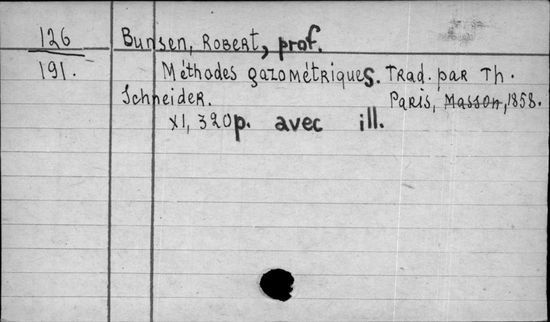 126 Bunsen, Robert, prof.
191. Méthodes gazométriques. Trad. par Th.
Schneider. Paris, Masson, 1858.
XI, 320p. avec ill.